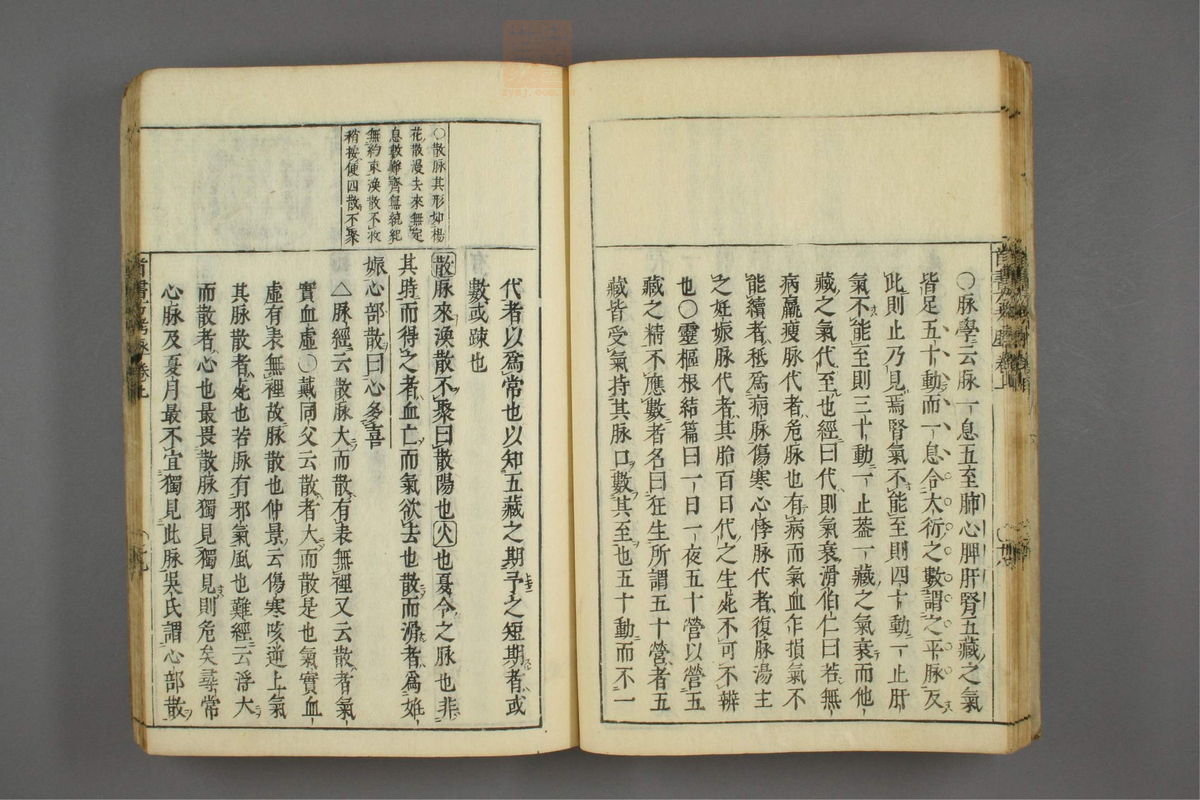 ○脉學云脉一息五至肺心脾肝腎五藏之氣
皆足五十動而一息令大衍之數謂之平脉反
此則止乃見焉腎氣不能至則四十動一止肝
氣不能至則三十動一止葢一藏之氣衰而他
藏之氣代至也經曰代則氣衰滑伯仁曰若無
病羸瘦脉代者危脉也有病而氣血乍損氣不
能續者秪爲病脉傷寒心悸脉代者復脉湯主
之妊娠脉代者其胎百日代之生死不可不辨
也○靈樞根結篇曰一日一夜五十營以營五
藏之精不應數者名曰狂生所謂五十營者五
藏皆受氣持其脉口數其至也五十動而不一
代者以爲常也以知五藏之期予之短期者或
數或踈也
○散脉其形如楊
花散漫去來無定
息數難齊無統紀
無約束渙散不收
稍按便四散不聚
散脉來渙散不聚曰散陽也火也夏令之脉也非
其時而得之者血亡而氣欲去也散而滑者爲妊
娠心部散曰心多喜
△脉經云散脉大而散有表無裡又云散者氣
實血虛○戴同父云散者大而散是也氣實血
虛有表無裡故脉散也仲景云傷寒咳逆上氣
其脉散者死也若脉有邪氣風也難經云浮大
而散者心也最畏散脉獨見獨見則危矣尋常
心脉及夏月最不宜獨見此脉吳氏謂心部散